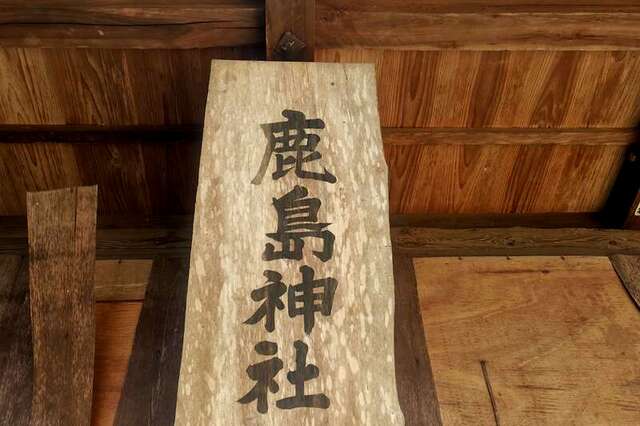 鹿島神社